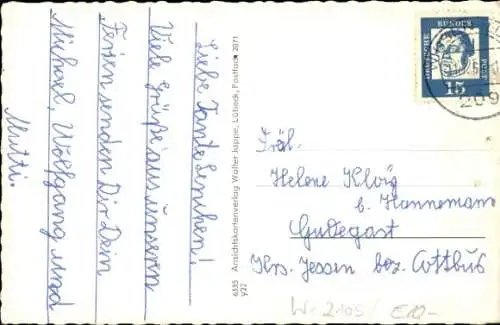 Liebe Tante Lenchen!
Viele Grüße aus unseren
Ferien senden Dir Dein
Michael, Wolfgang und
Mutti.
6335 Ansichtskartenverlag Walter Jappe, Lübeck, Postfach 2071
Y22
DEUTSCHE
BUNDES
POST
15
Fräl.
Helene Kloig
b. Hannemann
Gudegast
Krs. Jessen bez. Cottbus